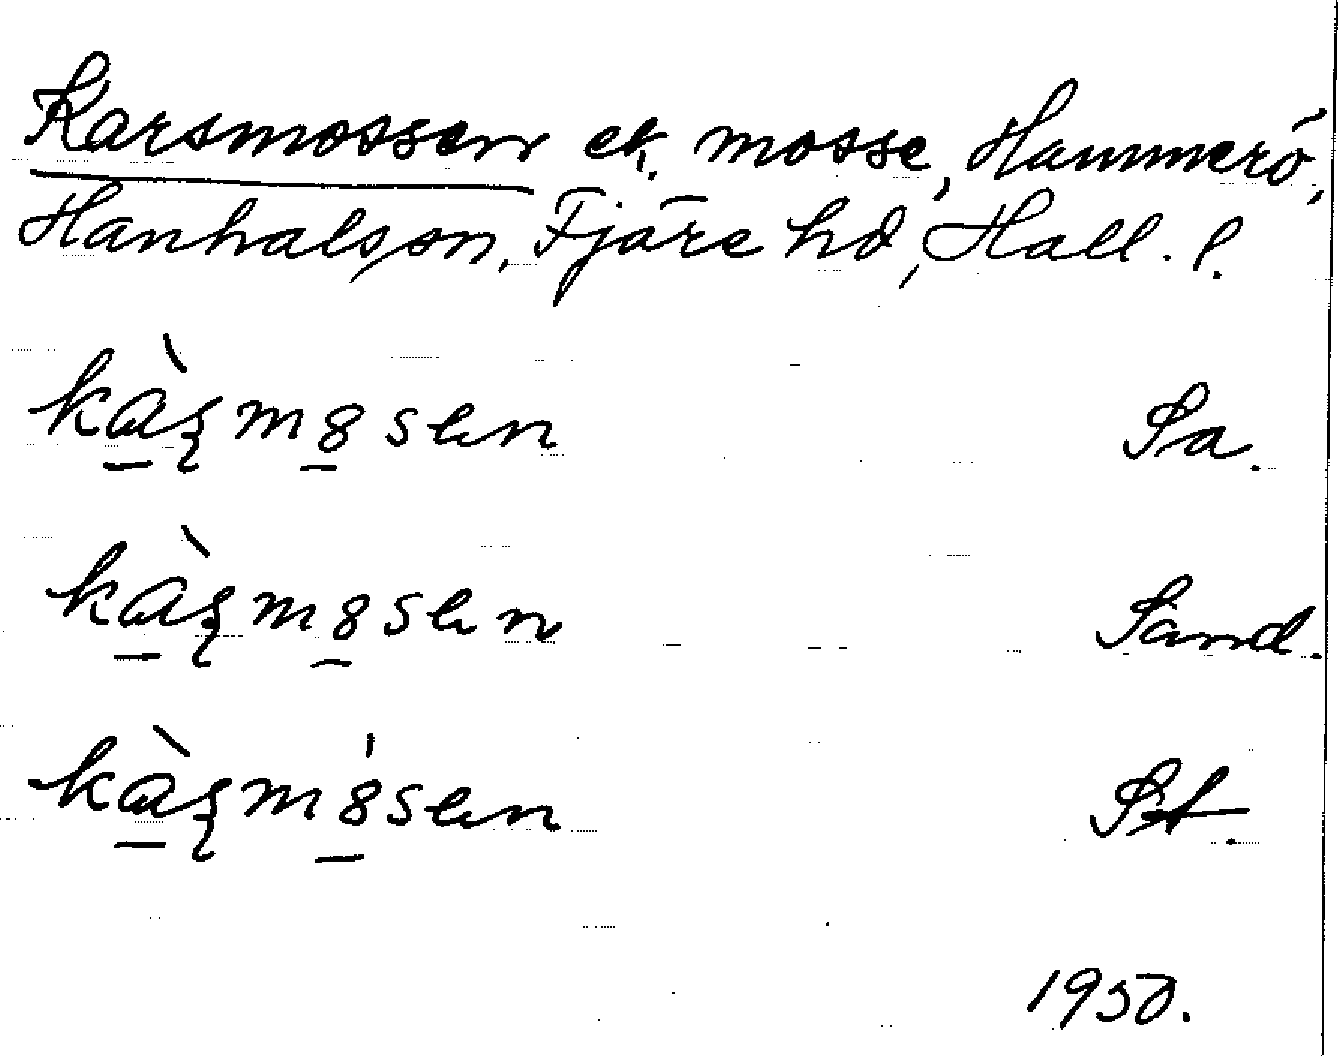 Karsmossen ek. mosse, Hammerö,
Hanhals sn, Fjäre hd, Hall. l.
kàʂm8sen Sa.
kàʂm8sen Sand.
kàʂm8́sen St.
1950.